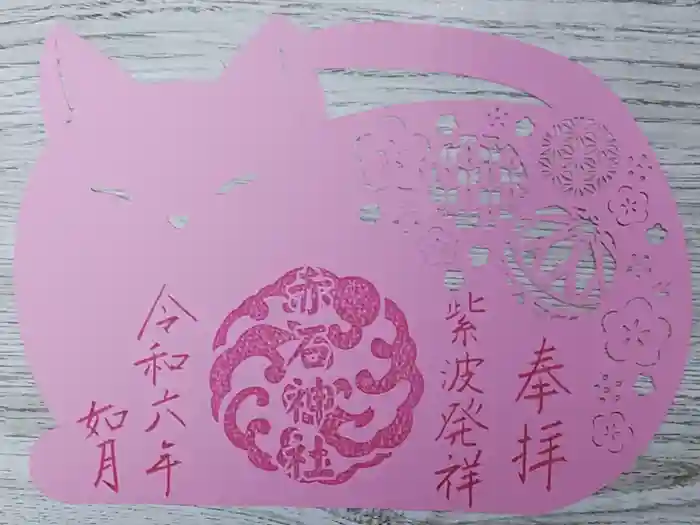 奉拝
紫波発祥
赤石神社
令和六年
如月